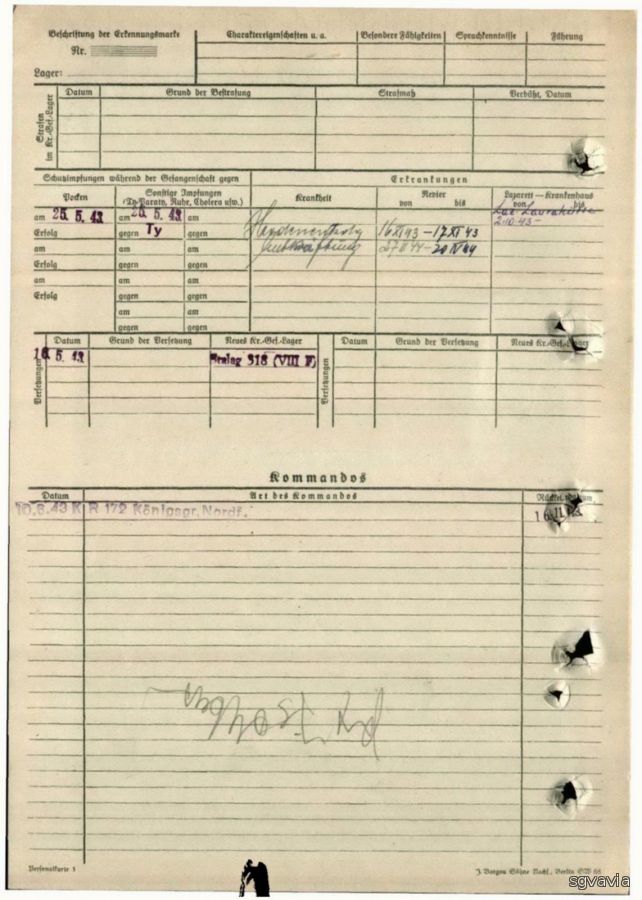 Beschriftung der Erkennungsmarke
Nr.
Lager:
Charaktereigenschaften u. a.
Besondere Fähigkeiten
Sprachkenntnisse
Führung
Strafen im Kr.-Gef.-Lager
Datum
Grund der Bestrafung
Strafmaß
Verbüßt, Datum
Schutzimpfungen während der Gefangenschaft gegen
Erkrankungen
Pocken
Sonstige Impfungen
(Ty. Paraty, Ruhr, Cholera usw.)
Krankheit
Revier
von bis
Lazarett — Krankenhaus
von bis
am 25. 5. 43
am 25. 5. 43
am
16 XI 43 — 17 XI 43
2.10.43 —
Erfolg
gegen Ty
gegen
20 IV 44
am
am
am
Erfolg
gegen
gegen
am
am
am
Erfolg
gegen
gegen
am
am
gegen
gegen
Versetzungen
Datum
Grund der Versetzung
Neues Kr.-Gef.-Lager
Versetzungen
Datum
Grund der Versetzung
Neues Kr.-Gef.-Lager
5. 43
Stalag 318 (VIII F)
Kommandos
Datum
Art des Kommandos
10.6.43 K R 172 Königsgr. Nordf.
Personalkarte 1
J. Bargou Söhne Nachf., Berlin SW 68
sgvavia